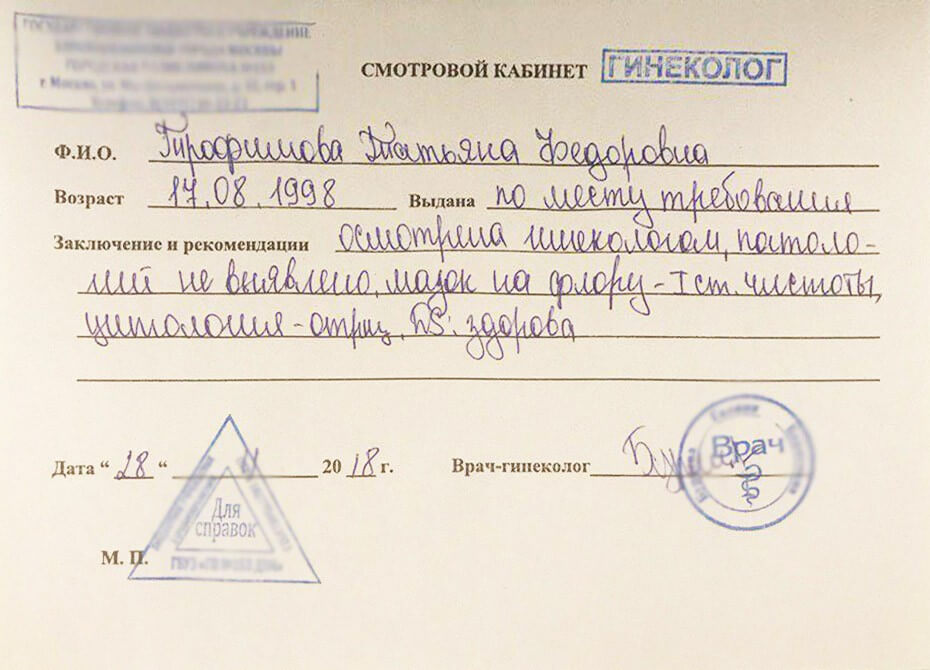 СМОТРОВОЙ КАБИНЕТ ГИНЕКОЛОГ
Ф.И.О. Трофимова Татьяна Федоровна
Возраст 17.08.1998 Выдана по месту требования
Заключение и рекомендации осмотрена гинекологом, патоло-
гий не выявлено, мазок на флору - I ст. чистоты,
цитология - отриц. DS: здорова
Дата “ 28 “ 20 18 г. Врач-гинеколог Врач
Для
справок
М. П.